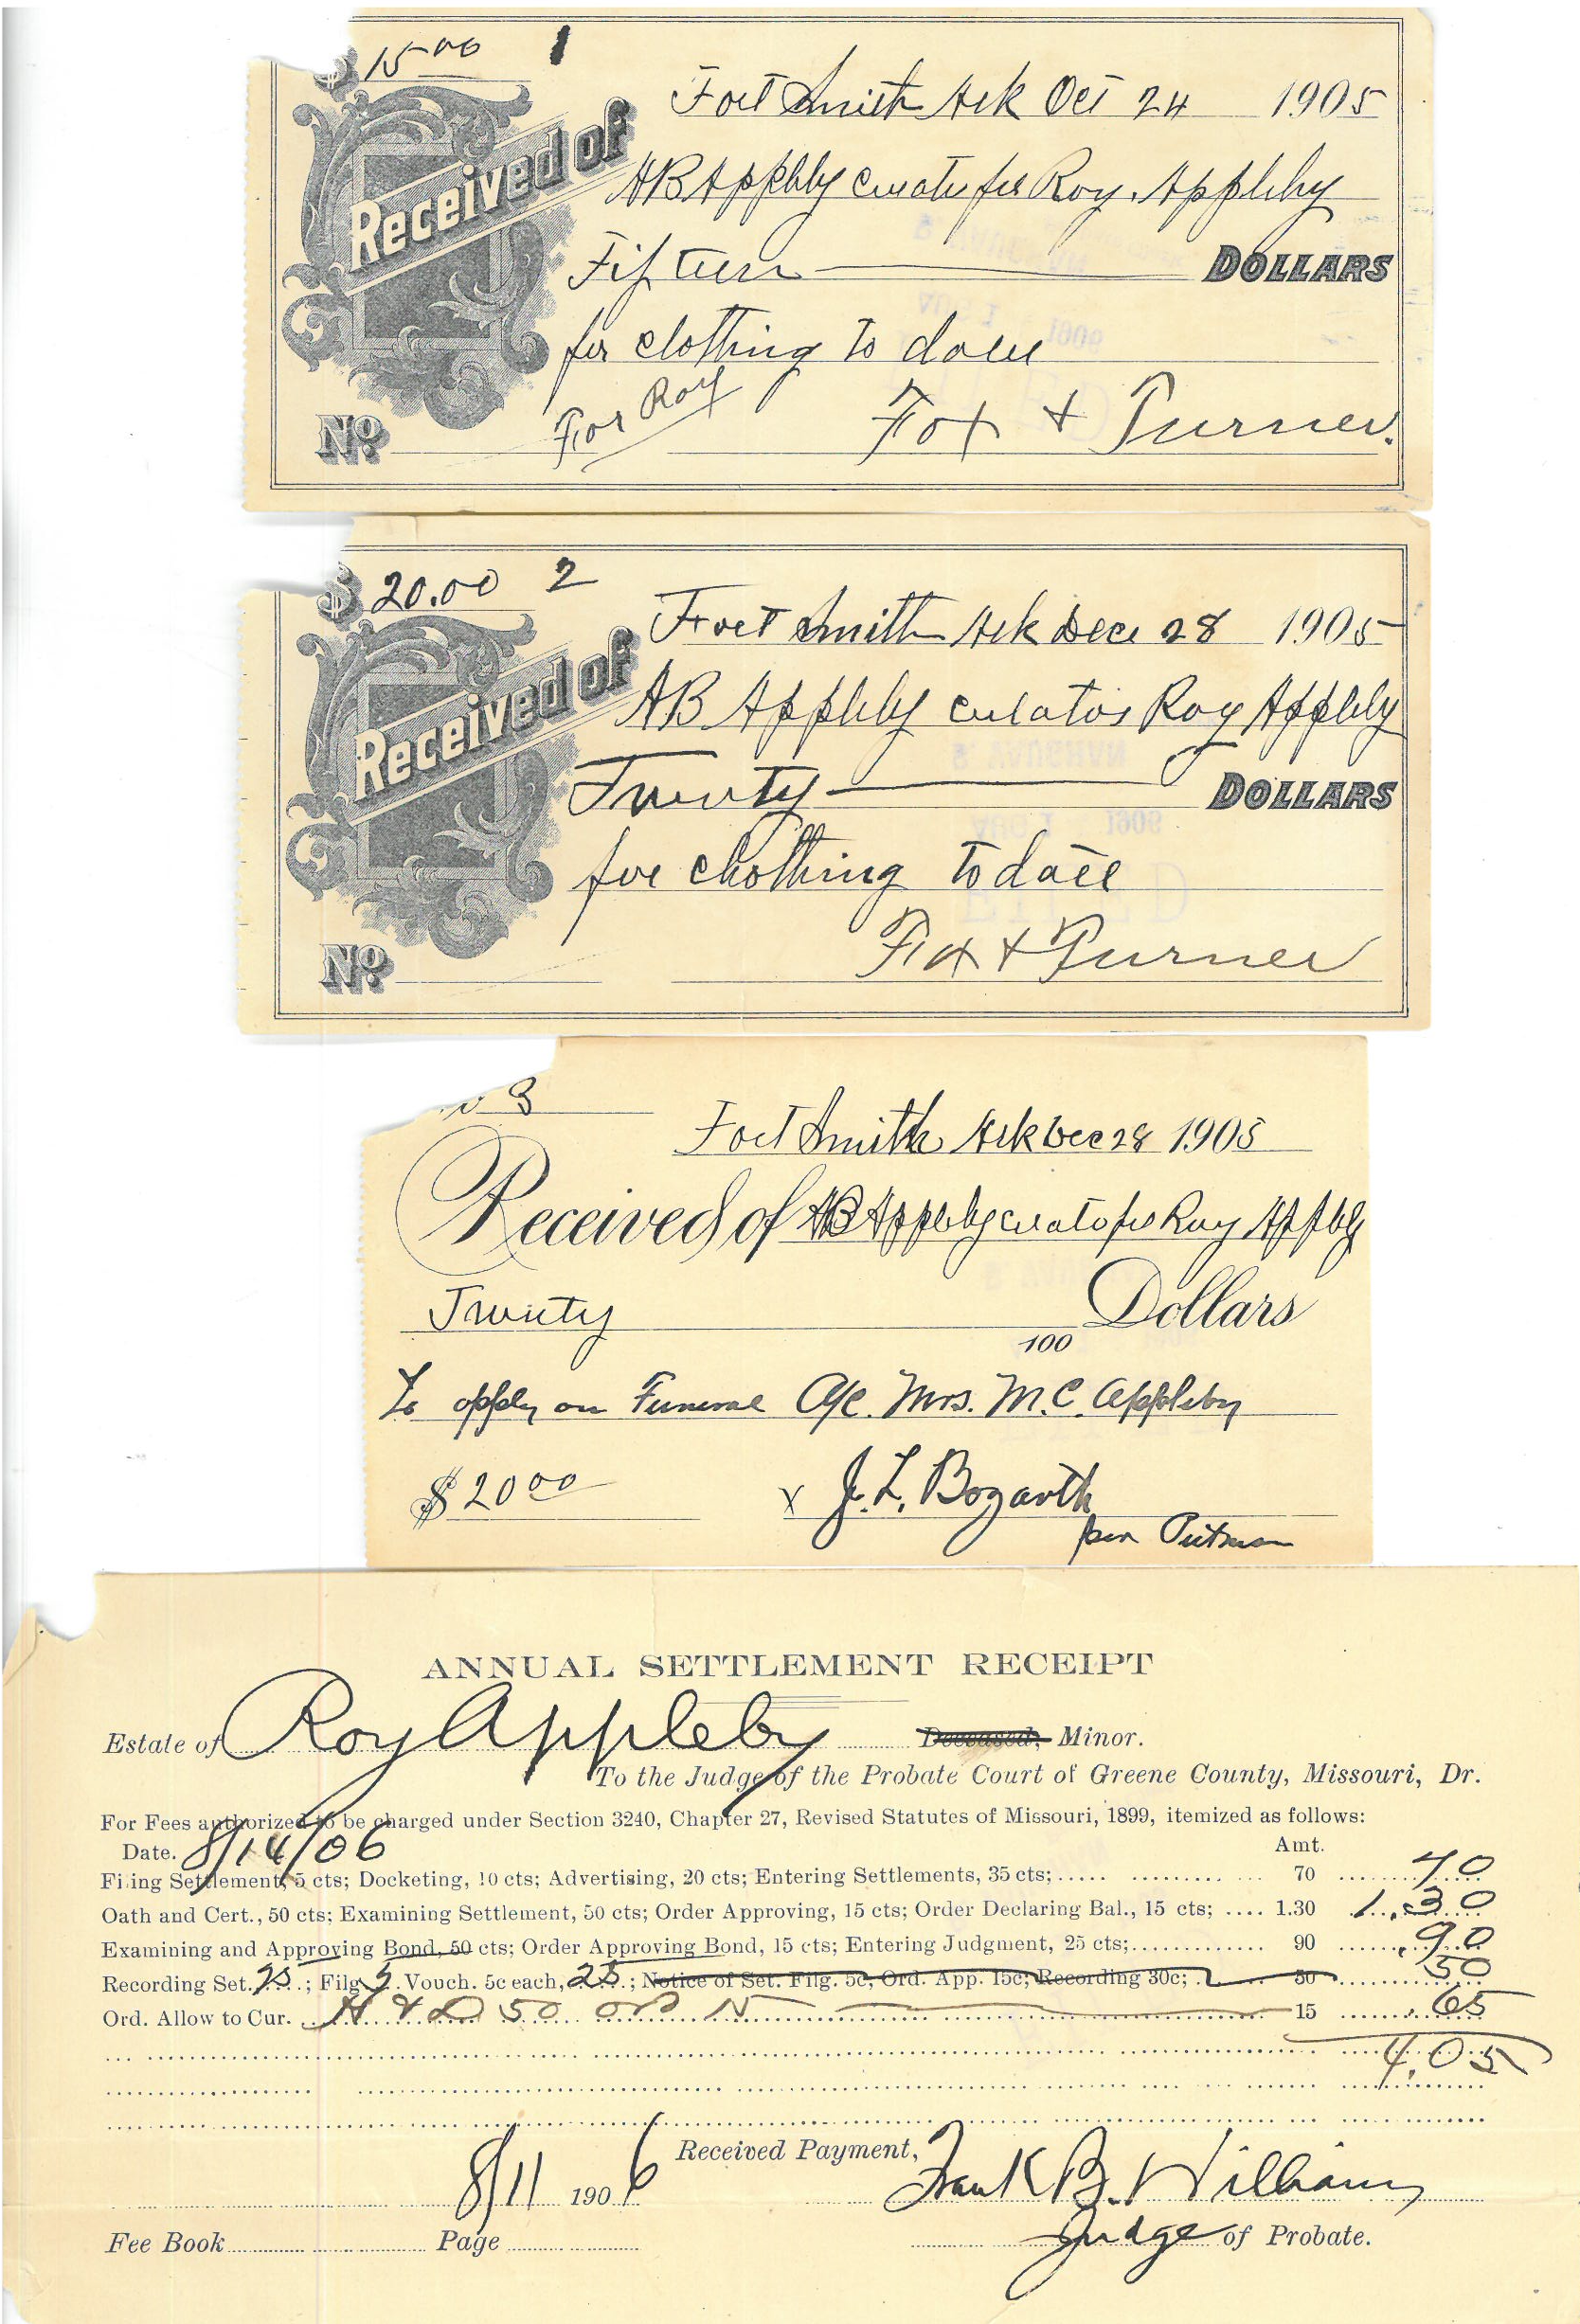 $ 15 00 1
Fort Smith Ark Oct 24 1905
Received of AB Appleby curator for Roy Appleby
Fifteen DOLLARS
for clothing to date
For Roy
No. Fox + Turner.
$ 20.00 2
Fort Smith Ark Dec 28 1905
Received of AB Appleby curator Roy Appleby
Twenty DOLLARS
for clothing to date
No. Fox + Turner
3
Fort Smith Ark Dec 28 1905
Received of AB Appleby curator for Roy Appleby
Twenty 100 Dollars
To apply on Funeral A/c. Mrs. M.C. Appleby
$ 20 00 x J. L. Bogarth
per Putman
ANNUAL SETTLEMENT RECEIPT
Estate of Roy Appleby Deceased, Minor.
To the Judge of the Probate Court of Greene County, Missouri, Dr.
For Fees authorized to be charged under Section 3240, Chapter 27, Revised Statutes of Missouri, 1899, itemized as follows:
Date. 8/14/06 Amt.
Filing Settlement, 5 cts; Docketing, 10 cts; Advertising, 20 cts; Entering Settlements, 35 cts; 70 70
Oath and Cert., 50 cts; Examining Settlement, 50 cts; Order Approving, 15 cts; Order Declaring Bal., 15 cts; 1.30 1.30
Examining and Approving Bond, 50 cts; Order Approving Bond, 15 cts; Entering Judgment, 25 cts; 90 .90
Recording Set. 25; Filg 5 Vouch. 5c each, 25; Notice of Set. Filg. 5c, Ord. App. 15c; Recording 30c; 50 50
Ord. Allow to Cur. 50 15 .65
4.05
8/11 1906 Received Payment, Frank B. Williams
Fee Book Page Judge of Probate.